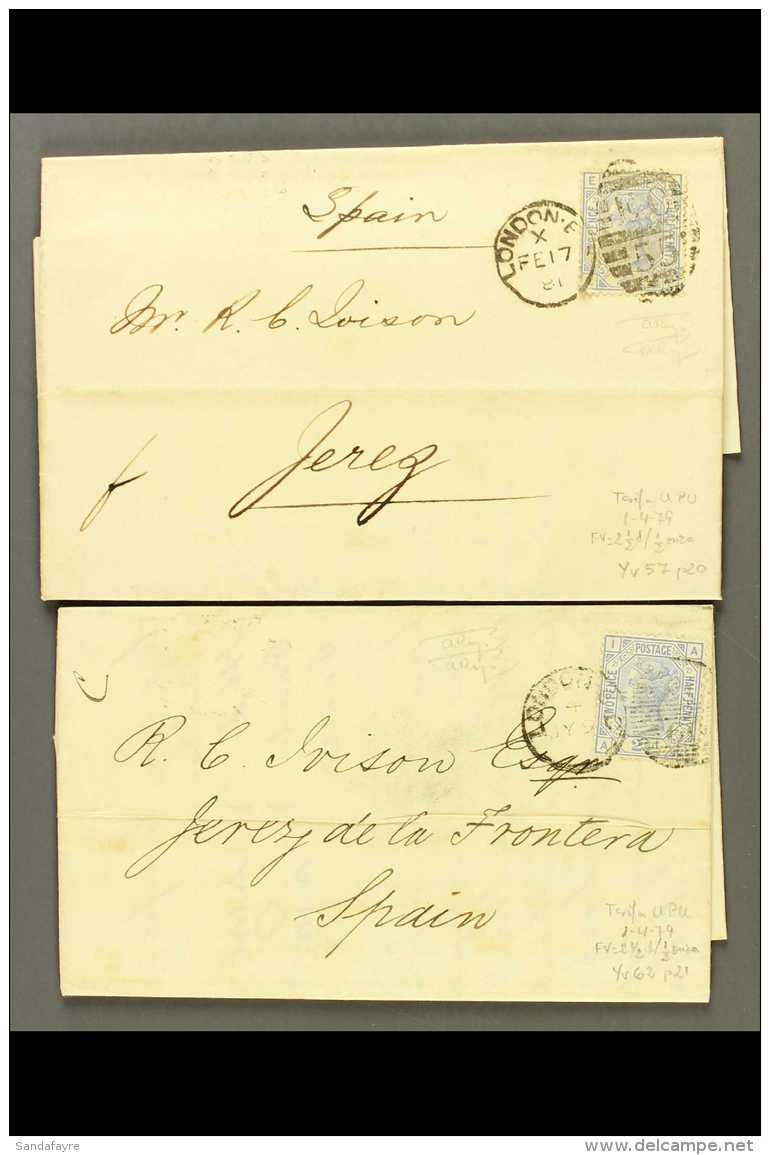 Spain
LONDON·E
X
FE 17
81
E
PENCE
Mr. R. C. Ivison
Jerez
Tarifa UPU
1-4-79
FV=2½d/½ onza
Yv 57 p20
I POSTAGE A
TWO PENCE
HALF PENNY
A
LONDON
4
R. C. Ivison Esqr
Jerez de la Frontera
Spain
Tarifa UPU
1-4-79
FV=2½d/½ onza
Yv 62 p21
Sandafayre
delcampe.net